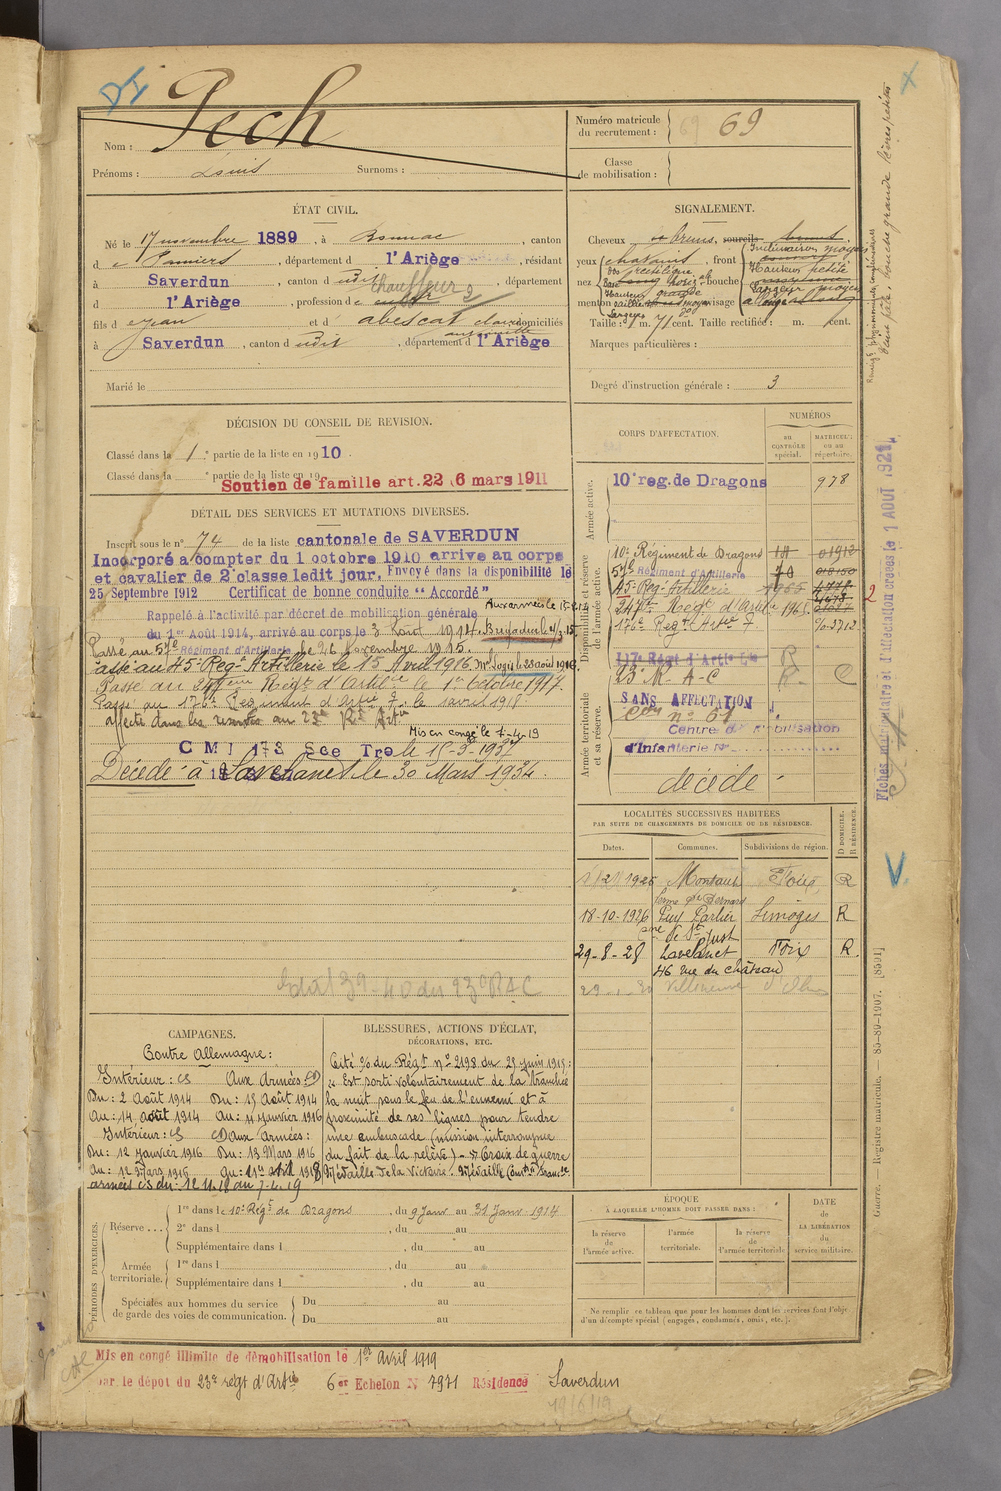 Pech
Nom :
Prénoms : Louis Surnoms :
Numéro matricule du recrutement : 69 69
Classe de mobilisation :
ÉTAT CIVIL.
Né le 17 novembre 1889, à Bonnac, canton
d e Pamiers, département d l'Ariège, résidant
à Saverdun, canton d udit, département
d l'Ariège, profession d e Chauffeur
fils d e Jean et d abescat claire antoinette domiciliés
à Saverdun, canton d udit, département d l'Ariège
Marié le
SIGNALEMENT.
Cheveux bruns, sourcils bruns
yeux chatains, front Inclinaison moyen
Hauteur petite
Largeur moyen
nez dos rectiligne
Base horiz ale
Hauteur grande
bouche
menton saillie moy visage allongé
Taille : 1 m. 71 cent. Taille rectifiée : m. cent.
Marques particulières :
Degré d'instruction générale : 3
DÉCISION DU CONSEIL DE REVISION.
Classé dans la 1 re partie de la liste en 1910.
Classé dans la e partie de la liste en 19
Soutien de famille art. 22 6 mars 1911
DÉTAIL DES SERVICES ET MUTATIONS DIVERSES.
Inscrit sous le n° 74 de la liste cantonale de SAVERDUN
Incorporé à compter du 1 octobre 1910 arrive au corps
et cavalier de 2e classe ledit jour. Envoyé dans la disponibilité le
25 Septembre 1912 Certificat de bonne conduite "Accordé"
Rappelé à l'activité par décret de mobilisation générale
du 1er Août 1914, arrivé au corps le 3 Août 1914. Brigadier le
Passé au 57e Régiment d'Artillerie le 26 novembre 1915.
Passé au 45e Reg t Artillerie le 15 Avril 1916 M al Logis le 23 août 1916
Passé au 247eme Reg t d'Artie le 1er Octobre 1917.
Passé au 176e Régiment d'Artie le 1 avril 1918
affecté dans les réserves au 23e R t Artie
Mis en congé le 7-4-19
C M I 173 Sce Tre le 15-3-1937
Décédé à Lavelanet le 30 Mars 1934.
CORPS D'AFFECTATION.
NUMÉROS
au CONTRÔLE spécial.
MATRICULE ou au répertoire.
Armée active.
10e reg. de Dragons 978
Disponibilité et réserve de l'armée active.
10e Régiment de Dragons 01912
57e Régiment d'Artillerie 70 018150
45e Reg t Artillerie 1965
247e Reg t d'Artie 1965
176e Reg t Artie
117e Régt d'Artie
23 R. A-C
Armée territoriale et sa réserve.
SANS AFFECTATION
Centre de Mobilisation
d'Infanterie N°
décédé
LOCALITÉS SUCCESSIVES HABITÉES
PAR SUITE DE CHANGEMENTS DE DOMICILE OU DE RÉSIDENCE.
Dates. Communes. Subdivisions de région. D DOMICILE. R RÉSIDENCE.
1926 Montaut Foix R
18-10-1926 Limoges R
29-8-28 Lavelanet Foix R
46 rue du château
Villeneuve d'Olmes
CAMPAGNES.
Contre Allemagne :
Intérieur : CS Aux Armées CD
Du : 2 Août 1914 Du : 15 Août 1914
Au : 14 août 1914 Au : 11 janvier 1916
Intérieur : CS CD aux Armées :
Du : 12 Janvier 1916 Du : 13 Mars 1916
Au : 12 Mars 1916 Au : 11 avril 1918
armées CS du : 12.4.18 au 7-4-19
BLESSURES, ACTIONS D'ÉCLAT,
DÉCORATIONS, ETC.
Cité % du Rég t n° 2198 du 25 Juin 1915 :
« Est sorti volontairement de la tranchée
la nuit sous le feu de l'ennemi et à
proximité de ses lignes pour tendre
une embuscade (mission interrompue
du fait de la relève) » Croix de guerre
Médaille de la Victoire. Médaille
PÉRIODES D'EXERCICES.
Réserve ... 1re dans le 10e Reg t de Dragons, du 9 Janv au 31 Janv 1914
2e dans l , du au
Supplémentaire dans l , du au
Armée territoriale. 1re dans l , du au
Supplémentaire dans l , du au
Spéciales aux hommes du service de garde des voies de communication. Du au
Du au
ÉPOQUE
À LAQUELLE L'HOMME DOIT PASSER DANS :
la réserve de l'armée active. l'armée territoriale. la réserve de l'armée territoriale
DATE DE LA LIBÉRATION du service militaire.
Ne remplir ce tableau que pour les hommes dont les services font l'objet
d'un décompte spécial (engagés, condamnés, omis, etc.).
Mis en congé illimité de démobilisation le 1er Avril 1919
par le dépôt du 23e régt d'Artie 6e Echelon N° 7971 Résidence Saverdun
Fiches matriculaire et d'affectation créées le 1 AOUT 1921
Guerre. — Registre matricule. — 85-89-1907. [8591]